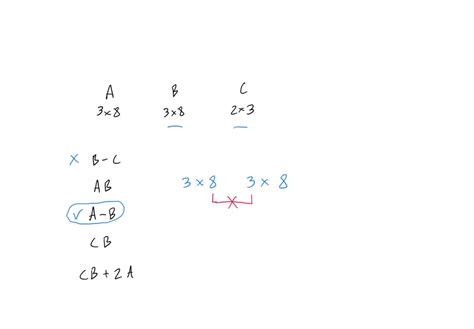 A B C
3×8 3×8 2×3
× B-C
AB 3×8 3×8
✓ A-B ×
CB
CB+2A